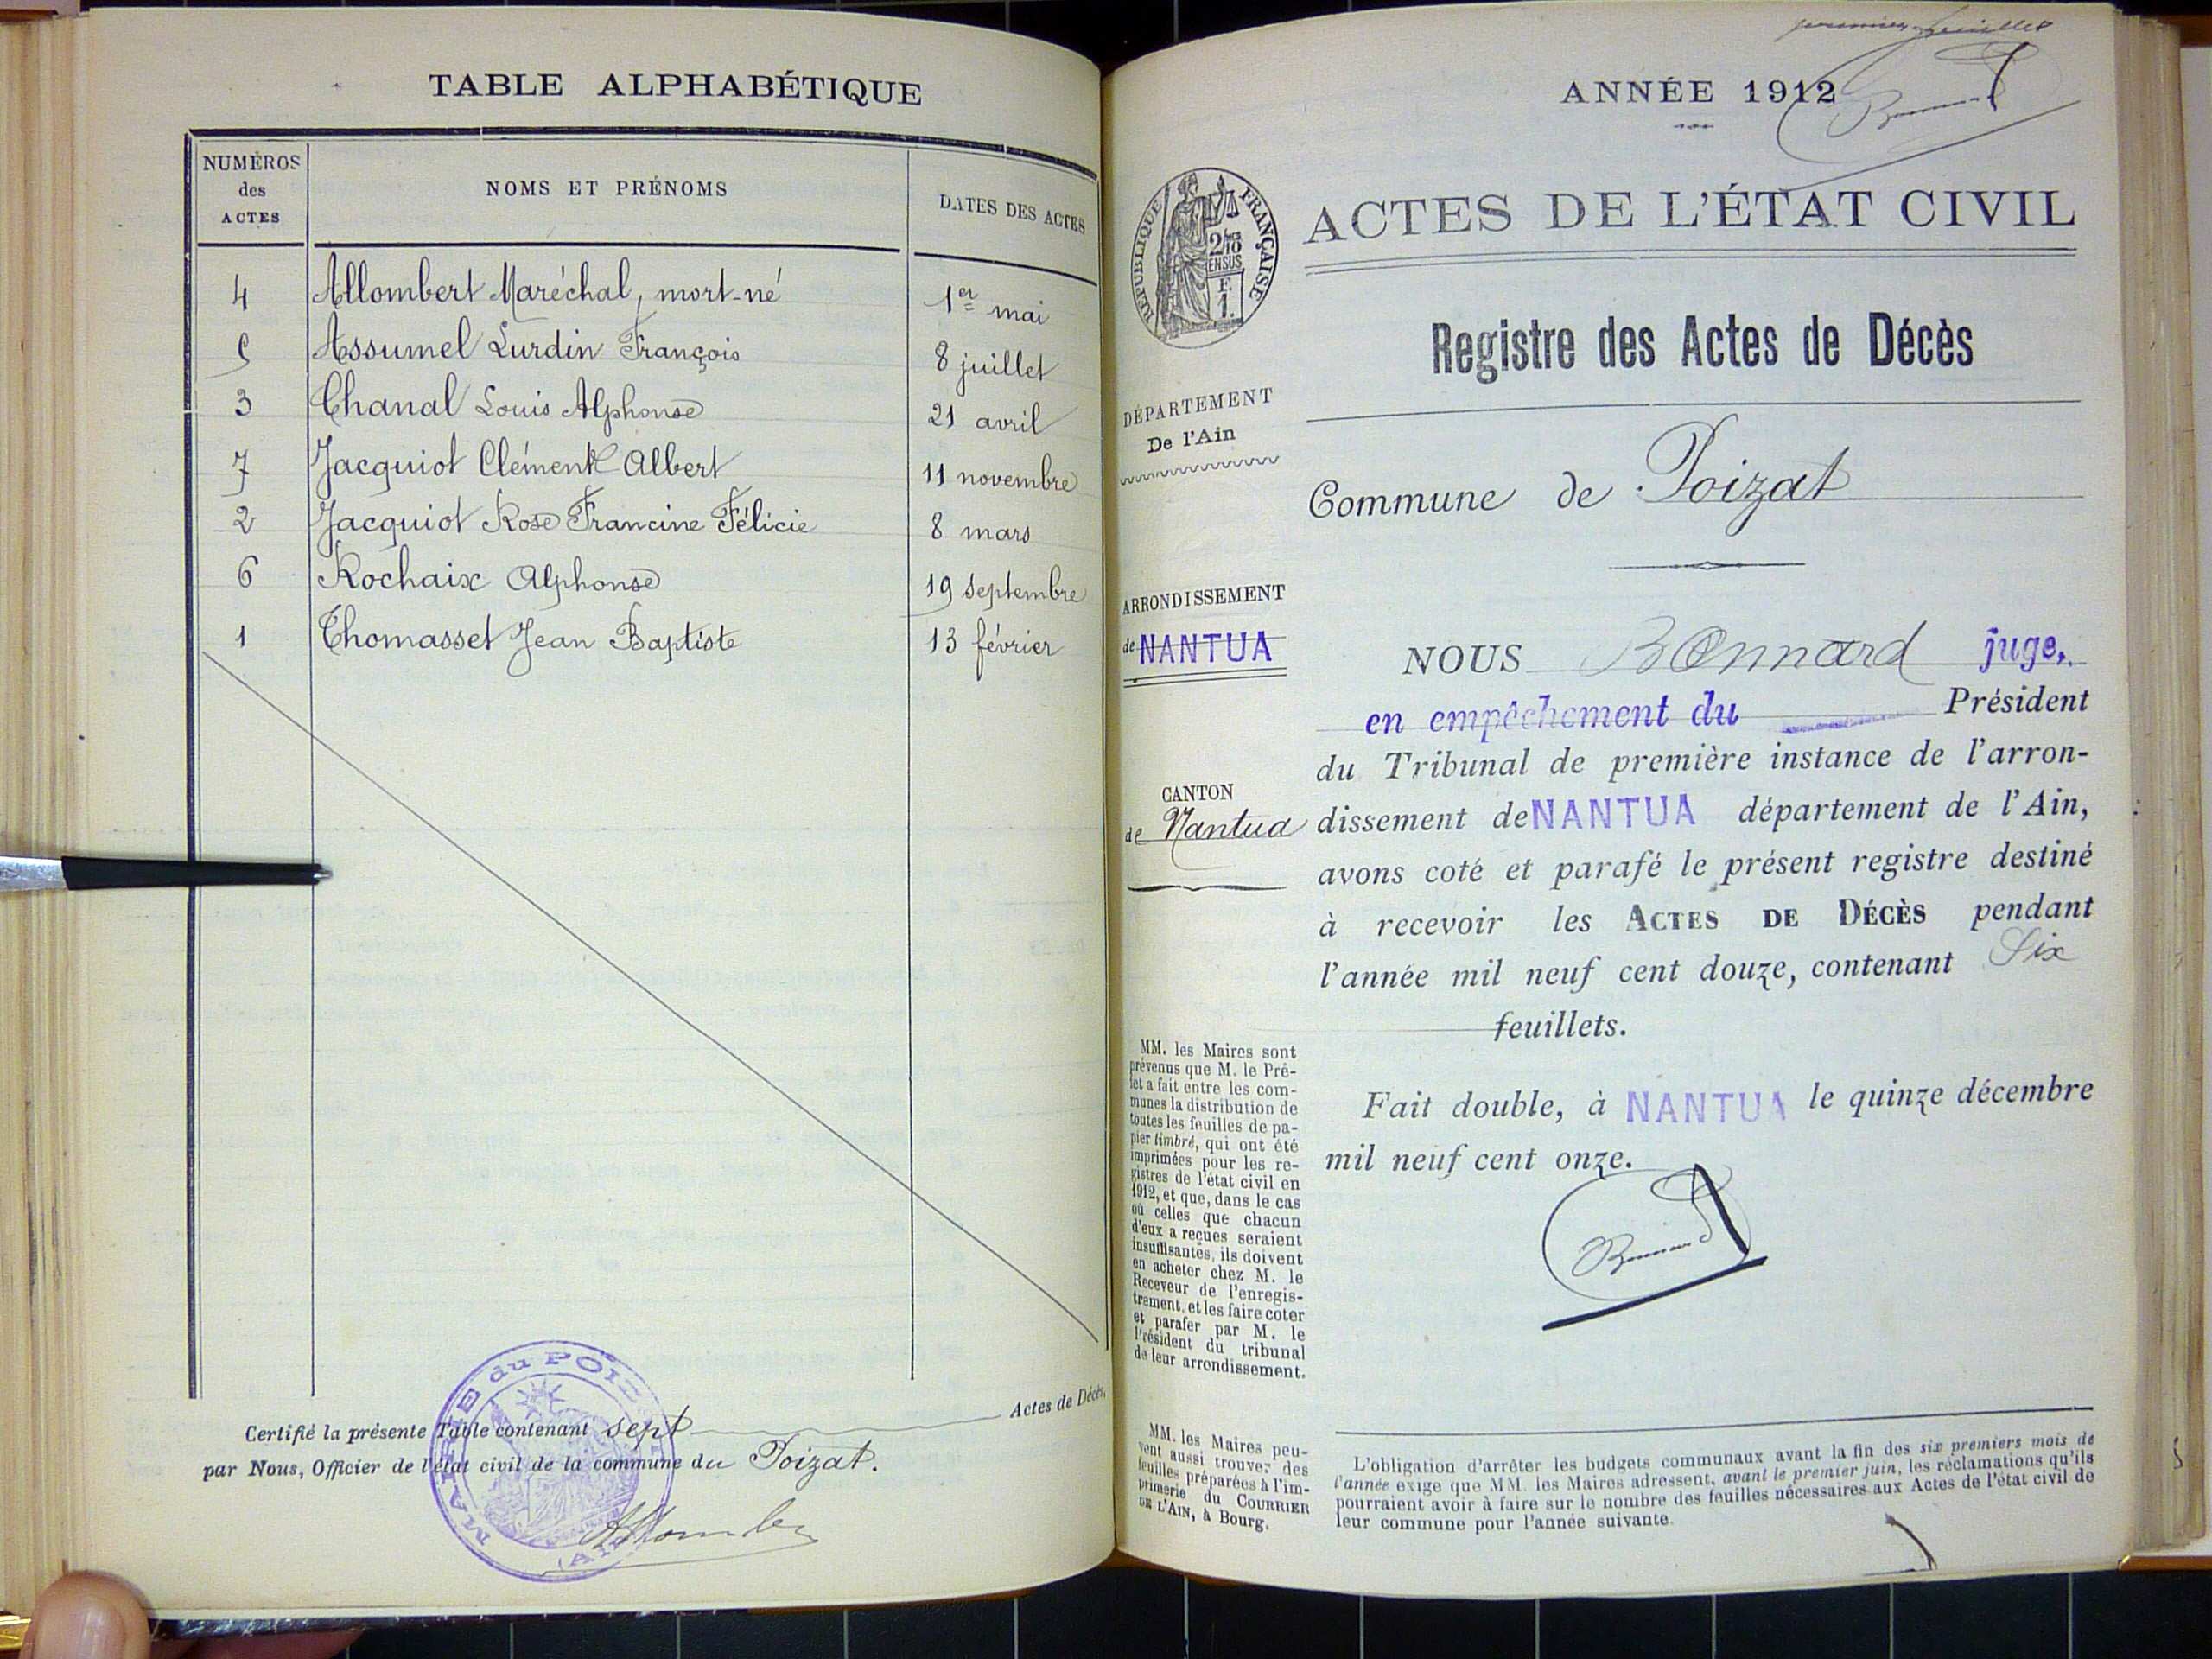 TABLE ALPHABÉTIQUE
NUMÉROS des ACTES
NOMS ET PRÉNOMS
DATES DES ACTES
4 Allombert Maréchal, mort-né 1er mai
5 Assumel Lurdin François 8 juillet
3 Chanal Louis Alphonse 21 avril
7 Jacquiot Clément Albert 11 novembre
2 Jacquiot Rose Francine Félicie 8 mars
6 Rochaix Alphonse 19 septembre
1 Thomasset Jean Baptiste 13 février
Certifié la présente Table contenant sept Actes de Décès,
par Nous, Officier de l'état civil de la commune du Poizat.
MAIRIE du POIZAT
(AIN)
Allombert
premier feuillet
ANNÉE 1912
RÉPUBLIQUE FRANÇAISE
2/10
EN SUS
F.
1.
ACTES DE L'ÉTAT CIVIL
Registre des Actes de Décès
DÉPARTEMENT
De l'Ain
Commune de Poizat
ARRONDISSEMENT
de NANTUA
CANTON
de Nantua
NOUS Bonnard juge,
en empêchement du Président
du Tribunal de première instance de l'arron-
dissement de NANTUA département de l'Ain,
avons coté et parafé le présent registre destiné
à recevoir les ACTES DE DÉCÈS pendant
l'année mil neuf cent douze, contenant Six
feuillets.
Fait double, à NANTUA le quinze décembre
mil neuf cent onze.
Bonnard
MM. les Maires sont
prévenus que M. le Pré-
fet a fait entre les com-
munes la distribution de
toutes les feuilles de pa-
pier timbré, qui ont été
imprimées pour les re-
gistres de l'état civil en
1912, et que, dans le cas
où celles que chacun
d'eux a reçues seraient
insuffisantes, ils doivent
en acheter chez M. le
Receveur de l'enregis-
trement, et les faire coter
et parafer par M. le
Président du tribunal
de leur arrondissement.
MM. les Maires peu-
vent aussi trouver des
feuilles préparées à l'im-
primerie du COURRIER
DE L'AIN, à Bourg.
L'obligation d'arrêter les budgets communaux avant la fin des six premiers mois de
l'année exige que MM. les Maires adressent, avant le premier juin, les réclamations qu'ils
pourraient avoir à faire sur le nombre des feuilles nécessaires aux Actes de l'état civil de
leur commune pour l'année suivante.